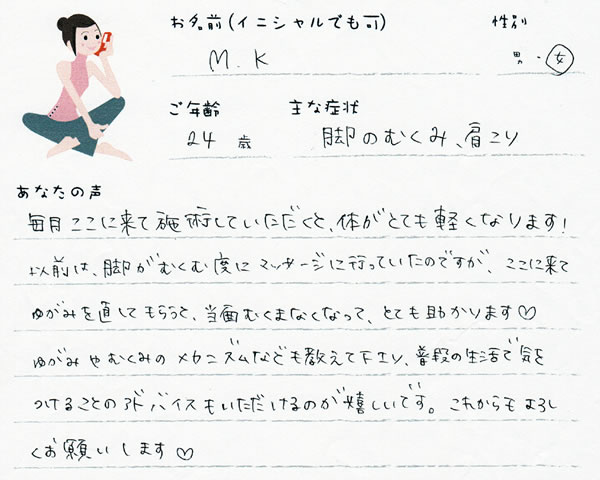 お名前(イニシャルでも可)
性別
M.K
男・女
ご年齢
主な症状
24 歳
脚のむくみ、肩こり
あなたの声
毎月ここに来て施術していただくと、体がとても軽くなります!
以前は、脚がむくむ度にマッサージに行っていたのですが、ここに来て
ゆがみを直してもらうと、当面むくまなくなって、とても助かります♡
ゆがみやむくみのメカニズムなども教えて下さり、普段の生活で気を
つけることのアドバイスもいただけるのが嬉しいです。これからもよろし
くお願いします♡